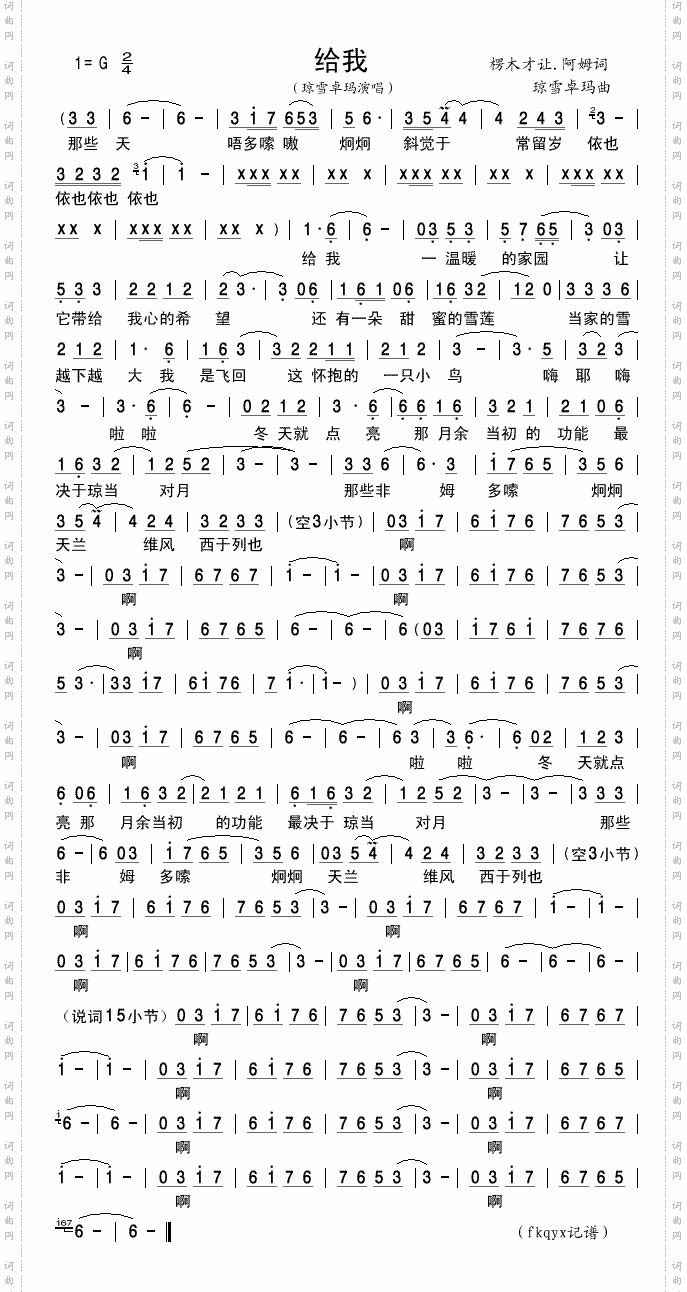 给我
1=G 2/4
楞木才让.阿姆词
(琼雪卓玛演唱)
琼雪卓玛曲
(3 3 | 6 - | 6 - | 3 i 7 6 5 3 | 5 6· | 3 5 4 4 | 4 2 4 3 | 3 - |
那些 天 唔多嗦 嗷 炯炯 斜觉于 常留岁 依也
3 2 3 2 i | i - | x x x x x | x x x | x x x x x | x x x | x x x x x |
依也依也 依也
x x x | x x x x x | x x x ) | 1· 6 | 6 - | 0 3 5 3 | 5 7 6 5 | 3 0 3 |
给 我 一 温暖 的家园 让
5 3 3 | 2 2 1 2 | 2 3· | 3 0 6 | 1 6 1 0 6 | 1 6 3 2 | 1 2 0 | 3 3 3 6 |
它带给 我心的希 望 还 有一朵 甜 蜜的雪莲 当家的雪
2 1 2 | 1· 6 | 1 6 3 | 3 2 2 1 1 | 2 1 2 | 3 - | 3· 5 | 3 2 3 |
越下越 大 我 是飞回 这 怀抱的 一只小 鸟 嗨 耶 嗨
3 - | 3· 6 | 6 - | 0 2 1 2 | 3 6 | 6 6 1 6 | 3 2 1 | 2 1 0 6 |
啦 啦 冬 天就 点 亮 那 月余 当初 的 功能 最
1 6 3 2 | 1 2 5 2 | 3 - | 3 - | 3 3 6 | 6· 3 | i 7 6 5 | 3 5 6 |
决于琼当 对月 那些非 姆 多嗦 炯炯
3 5 4 | 4 2 4 | 3 2 3 3 | (空3小节) | 0 3 i 7 | 6 i 7 6 | 7 6 5 3 |
天兰 维风 西于列也 啊
3 - | 0 3 i 7 | 6 7 6 7 | i - | i - | 0 3 i 7 | 6 i 7 6 | 7 6 5 3 |
啊 啊
3 - | 0 3 i 7 | 6 7 6 5 | 6 - | 6 - | 6 (0 3 | i 7 6 i | 7 6 7 6 |
啊
5 3· | 3 3 i 7 | 6 i 7 6 | 7 i· | i - ) | 0 3 i 7 | 6 i 7 6 | 7 6 5 3 |
啊
3 - | 0 3 i 7 | 6 7 6 5 | 6 - | 6 - | 6 3 | 3 6· | 6 0 2 | 1 2 3 |
啊 啦 啦 冬 天就点
6 0 6 | 1 6 3 2 | 2 1 2 1 | 6 1 6 3 2 | 1 2 5 2 | 3 - | 3 - | 3 3 3 |
亮 那 月余当初 的功能 最决于 琼当 对月 那些
6 - | 6 0 3 | i 7 6 5 | 3 5 6 | 0 3 5 4 | 4 2 4 | 3 2 3 3 | (空3小节)
非 姆 多嗦 炯炯 天兰 维风 西于列也
0 3 i 7 | 6 i 7 6 | 7 6 5 3 | 3 - | 0 3 i 7 | 6 7 6 7 | i - | i - |
啊 啊
0 3 i 7 | 6 i 7 6 | 7 6 5 3 | 3 - | 0 3 i 7 | 6 7 6 5 | 6 - | 6 - | 6 - |
啊 啊
(说词15小节) 0 3 i 7 | 6 i 7 6 | 7 6 5 3 | 3 - | 0 3 i 7 | 6 7 6 7 |
啊 啊
i - | i - | 0 3 i 7 | 6 i 7 6 | 7 6 5 3 | 3 - | 0 3 i 7 | 6 7 6 5 |
啊 啊
6 - | 6 - | 0 3 i 7 | 6 i 7 6 | 7 6 5 3 | 3 - | 0 3 i 7 | 6 7 6 7 |
啊 啊
i - | i - | 0 3 i 7 | 6 i 7 6 | 7 6 5 3 | 3 - | 0 3 i 7 | 6 7 6 5 |
啊 啊
i67 6 - | 6 - ‖
(fkqyx记谱)
词曲网